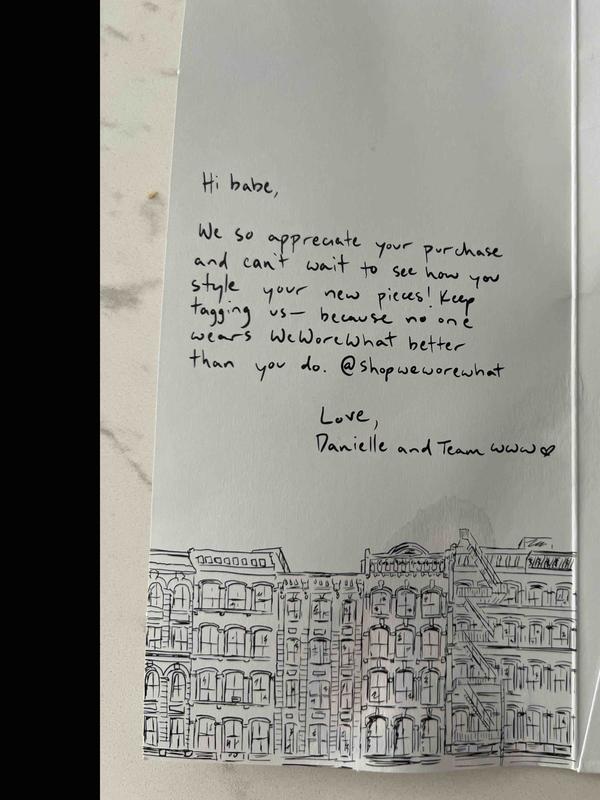 Hi babe,
We so appreciate your purchase
and can't wait to see how you
style your new pieces! Keep
tagging us— because no one
wears WeWoreWhat better
than you do. @shopweworewhat
Love,
Danielle and Team WWW♡